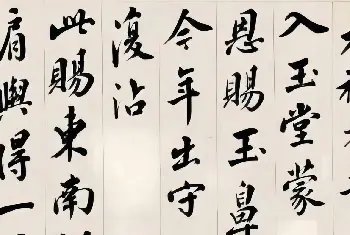 入玉堂蒙
恩賜玉鼻
今年出守
復沾
此賜東南
肩輿得一